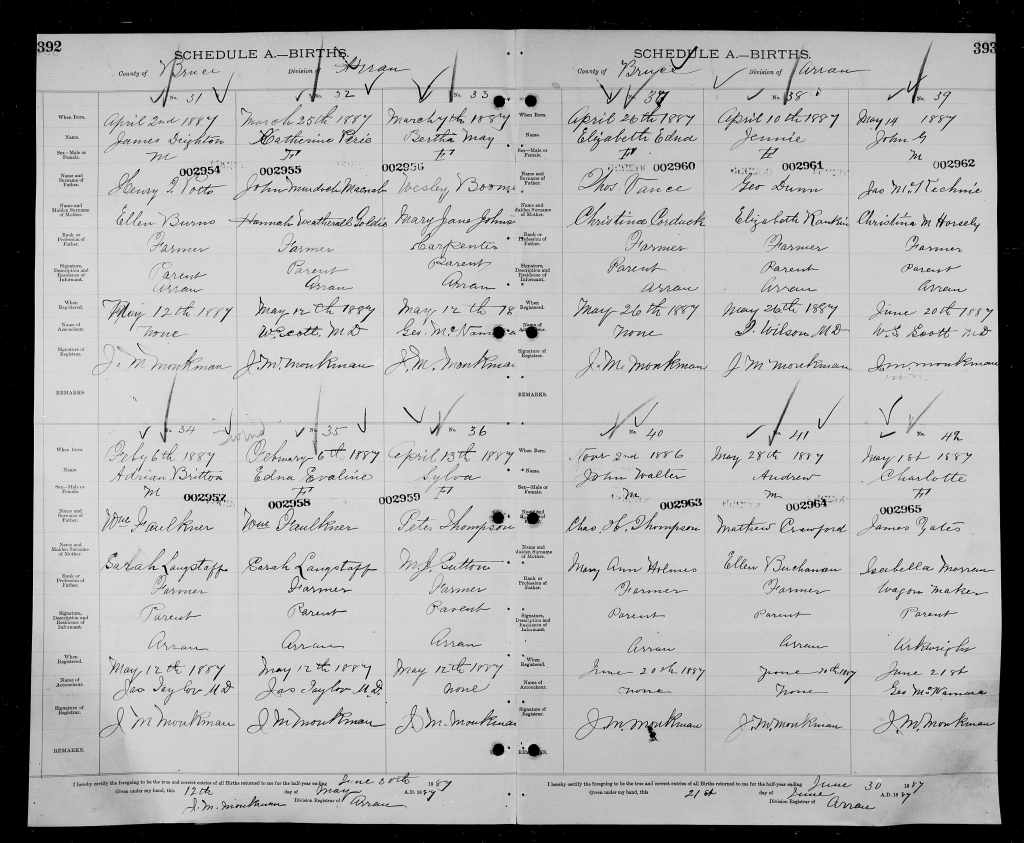 392
SCHEDULE A.—BIRTHS.
County of Bruce Division of Arran
No. 31 No. 32 No. 33
When Born. April 2nd 1887 March 25th 1887 March 7th 1887
Name. James Deighton Katherine Bertha May
Sex—Male or Female. M F F
002954 002955 002956
Name and Surname of Father. Henry Potts John Murdoch Wesley Boom
Name and Maiden Surname of Mother. Ellen Burns Hannah Goldie Mary Jane Johns
Rank or Profession of Father. Farmer Farmer Carpenter
Signature, Description and Residence of Informant. Parent Parent Parent
Arran Arran Arran
When Registered. May 12th 1887 May 12th 1887 May 12th 18
Name of Accoucheur. None W. Scott, MD Geo. McNam
Signature of Registrar. J. M Monkman J. M. Monkman J. M. Monkman
REMARKS.
No. 34 No. 35 No. 36
When Born. Feby 6th 1887 February 6th 1887 April 13th 1887
Name Adrian Britton Edna Evaline Sylva
Sex—Male or Female. M F F
002957 002958 002959
Name and Surname of Father. Wm Faulkner Wm Faulkner Peter Thompson
Name and Maiden Surname of Mother. Sarah Langstaff Sarah Langstaff M. J. Sutton
Rank or Profession of Father. Farmer Farmer Farmer
Signature, Description and Residence of Informant. Parent Parent Parent
Arran Arran Arran
When Registered. May 12th 1887 May 12th 1887 May 12th 1887
Name of Accoucheur. Jas Taylor M.D Jas Taylor M.D None
Signature of Registrar. J M Monkman J M Monkman J. M. Monkman
REMARKS.
I hereby certify the foregoing to be the true and correct entries of all Births returned to me for the half-year ending June 30th 1887
Given under my hand, this 12th day of May A.D. 1887
J. M. Monkman Division Registrar of Arran
393
SCHEDULE A.—BIRTHS.
County of Bruce Division of Arran
No. 37 No. 38 No. 39
When Born. April 26th 1887 April 10th 1887 May 14 1887
Name. Elizabeth Edna Jennie John G
Sex—Male or Female. F F M
002960 002961 002962
Name and Surname of Father. Thos Vance Geo Dunn Jas
Name and Maiden Surname of Mother. Christina Corduck Elizabeth Rankin Christina M Horsely
Rank or Profession of Father. Farmer Farmer Farmer
Signature, Description and Residence of Informant. Parent Parent Parent
Arran Arran Arran
When Registered. May 26th 1887 May 26th 1887 June 20th 1887
Name of Accoucheur. None Wilson MD W. S Scott MD
Signature of Registrar. J. M. Monkman J M Monkman J. M. Monkman
REMARKS.
No. 40 No. 41 No. 42
When Born. Novr 2nd 1886 May 28th 1887 May 1st 1887
Name. John Walter Andrew Charlotte
Sex—Male or Female. M M F
002963 002964 002965
Name and Surname of Father. Chas. H. Thompson Mathew Crawford James Yates
Name and Maiden Surname of Mother. Mary Ann Holmes Ellen Buchanan Isabella
Rank or Profession of Father. Farmer Farmer Wagon Maker
Signature, Description and Residence of Informant. Parent Parent Parent
Arran Arran Arkwright
When Registered. June 20th 1887 June 20th 1887 June 21st
Name of Accoucheur. None None Geo McNamara
Signature of Registrar. J. M. Monkman J. M. Monkman J. M. Monkman
REMARKS.
I hereby certify the foregoing to be the true and correct entries of all Births returned to me for the half-year ending June 30 1887
Given under my hand, this 21st day of June A.D. 1887
Division Registrar of Arran